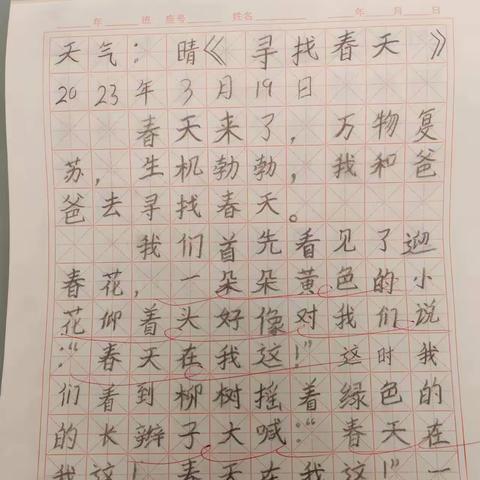 年 班 座号 姓名 年 月 日
天气:晴《寻找春天》
2023年3月19日
春天来了,万物复
苏,生机勃勃,我和爸
爸去寻找春天。
我们首先看见了迎
春花,一朵朵黄色的小
花仰着头好像对我们说
:“春天在我这!”这时我
们看到柳树摇着绿色的
的长辫子大喊:“春天在
我这!春天在我这!”一